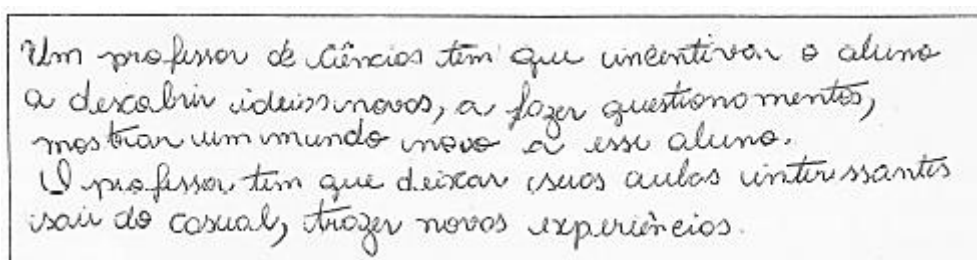 Um professor de Ciências tem que incentivar o aluno
a descobrir ideias novas, a fazer questionamentos,
mostrar um mundo novo a esse aluno.
O professor tem que deixar suas aulas interessantes
sair do casual, trazer novas experiências.